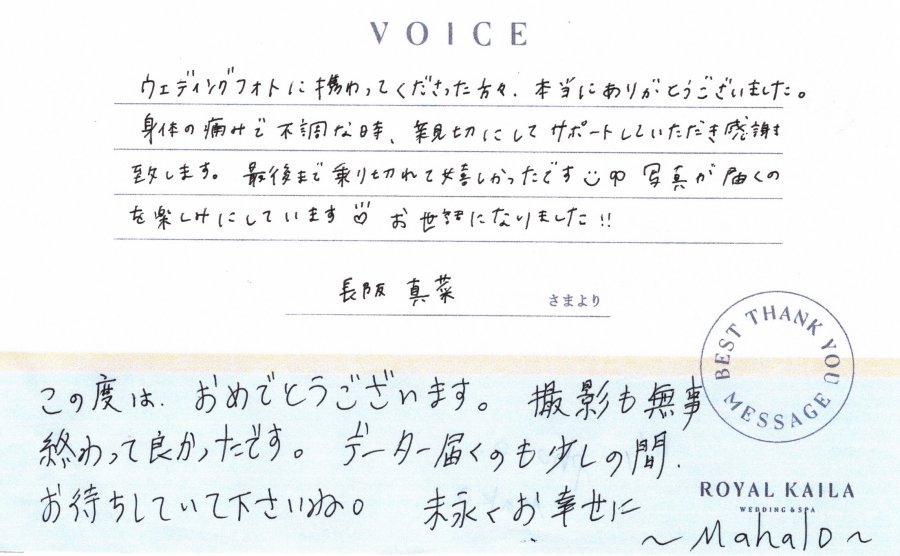 VOICE
ウェディングフォトに携わってくださった方々、本当にありがとうございました。
身体の痛みで不調な時、親切にしてサポートしていただき感謝
致します。最後まで乗り切れて嬉しかったです 写真が届くの
を楽しみにしています♡ お世話になりました!!
長阪 真菜 さまより
BEST THANK YOU MESSAGE
この度は、おめでとうございます。撮影も無事
終わって良かったです。データー届くのも少しの間、
お待ちしていて下さいね。末永くお幸せに
ROYAL KAILA
WEDDING & SPA
~Mahalo~